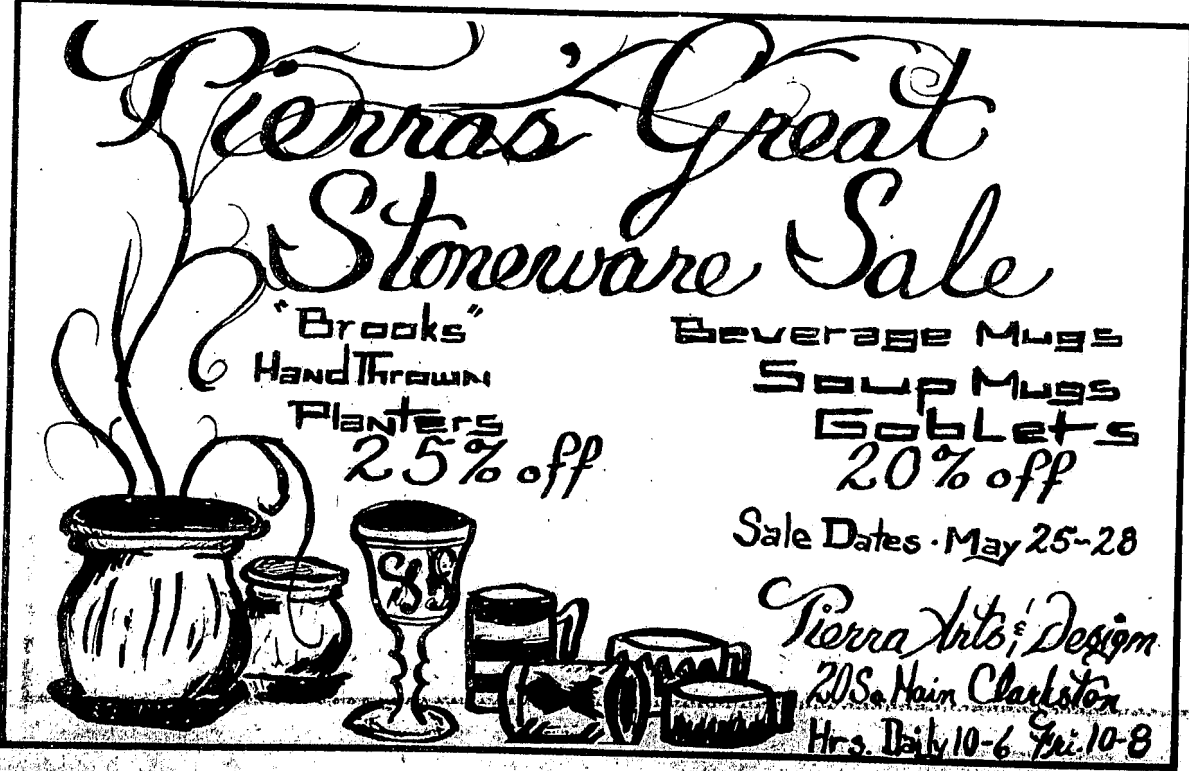 Tierras' Great
Stoneware Sale
"Brooks"
Hand Thrown
Planters
25% off
Beverage Mugs
Soup Mugs
Goblets
20% off
Sale Dates · May 25-28
Tierra Arts & Design
20 So. Main Clarkston
Hrs. Daily 10-6 Fri. 10-8